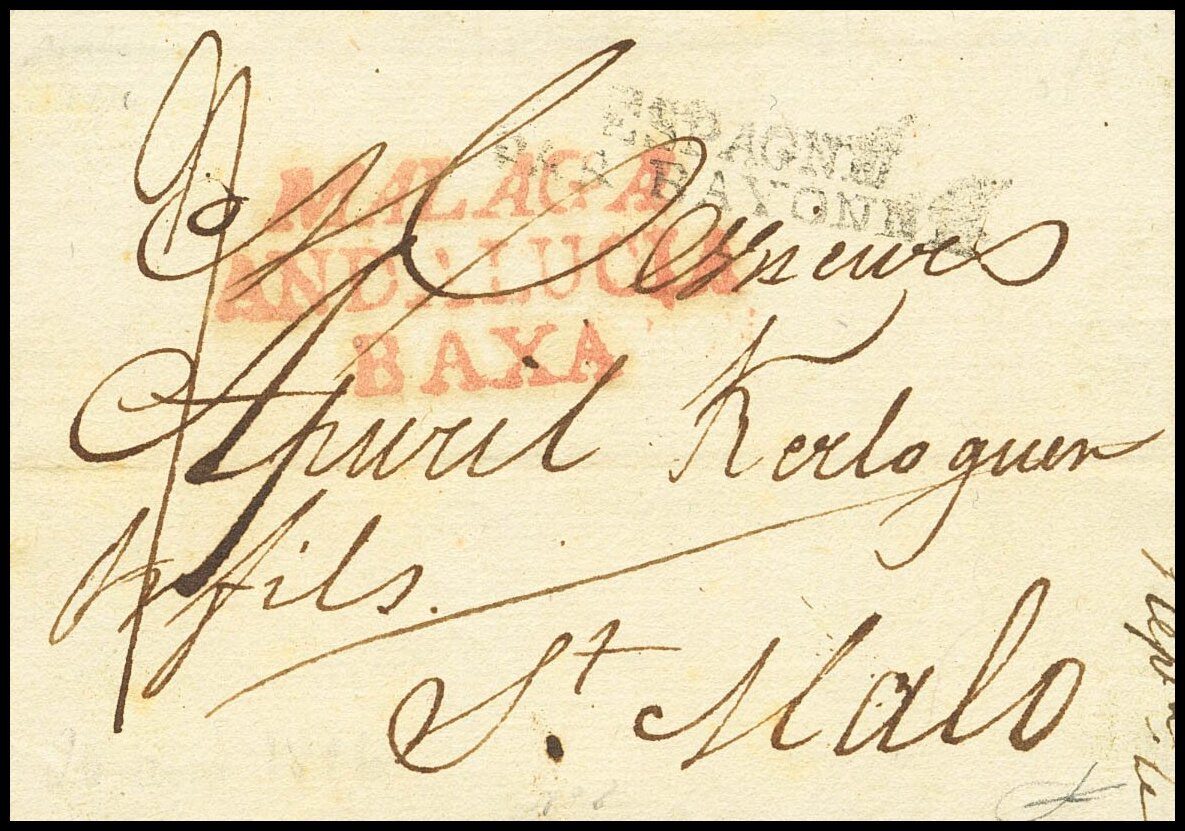 ESPAGNE
PAR BAYONNE
MALAGA
ANDALUCIA
BAXA
Messieurs
Apuril Kerloguen
& fils.
St Malo